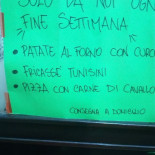 SOLO DA NOI OGN
FINE SETTIMANA
• PATATE AL FORNO CON CUORE
• FRICASSÉ TUNISINI
• PIZZA CON CARNE DI CAVALLO
CONSEGNA A DOMICILIO